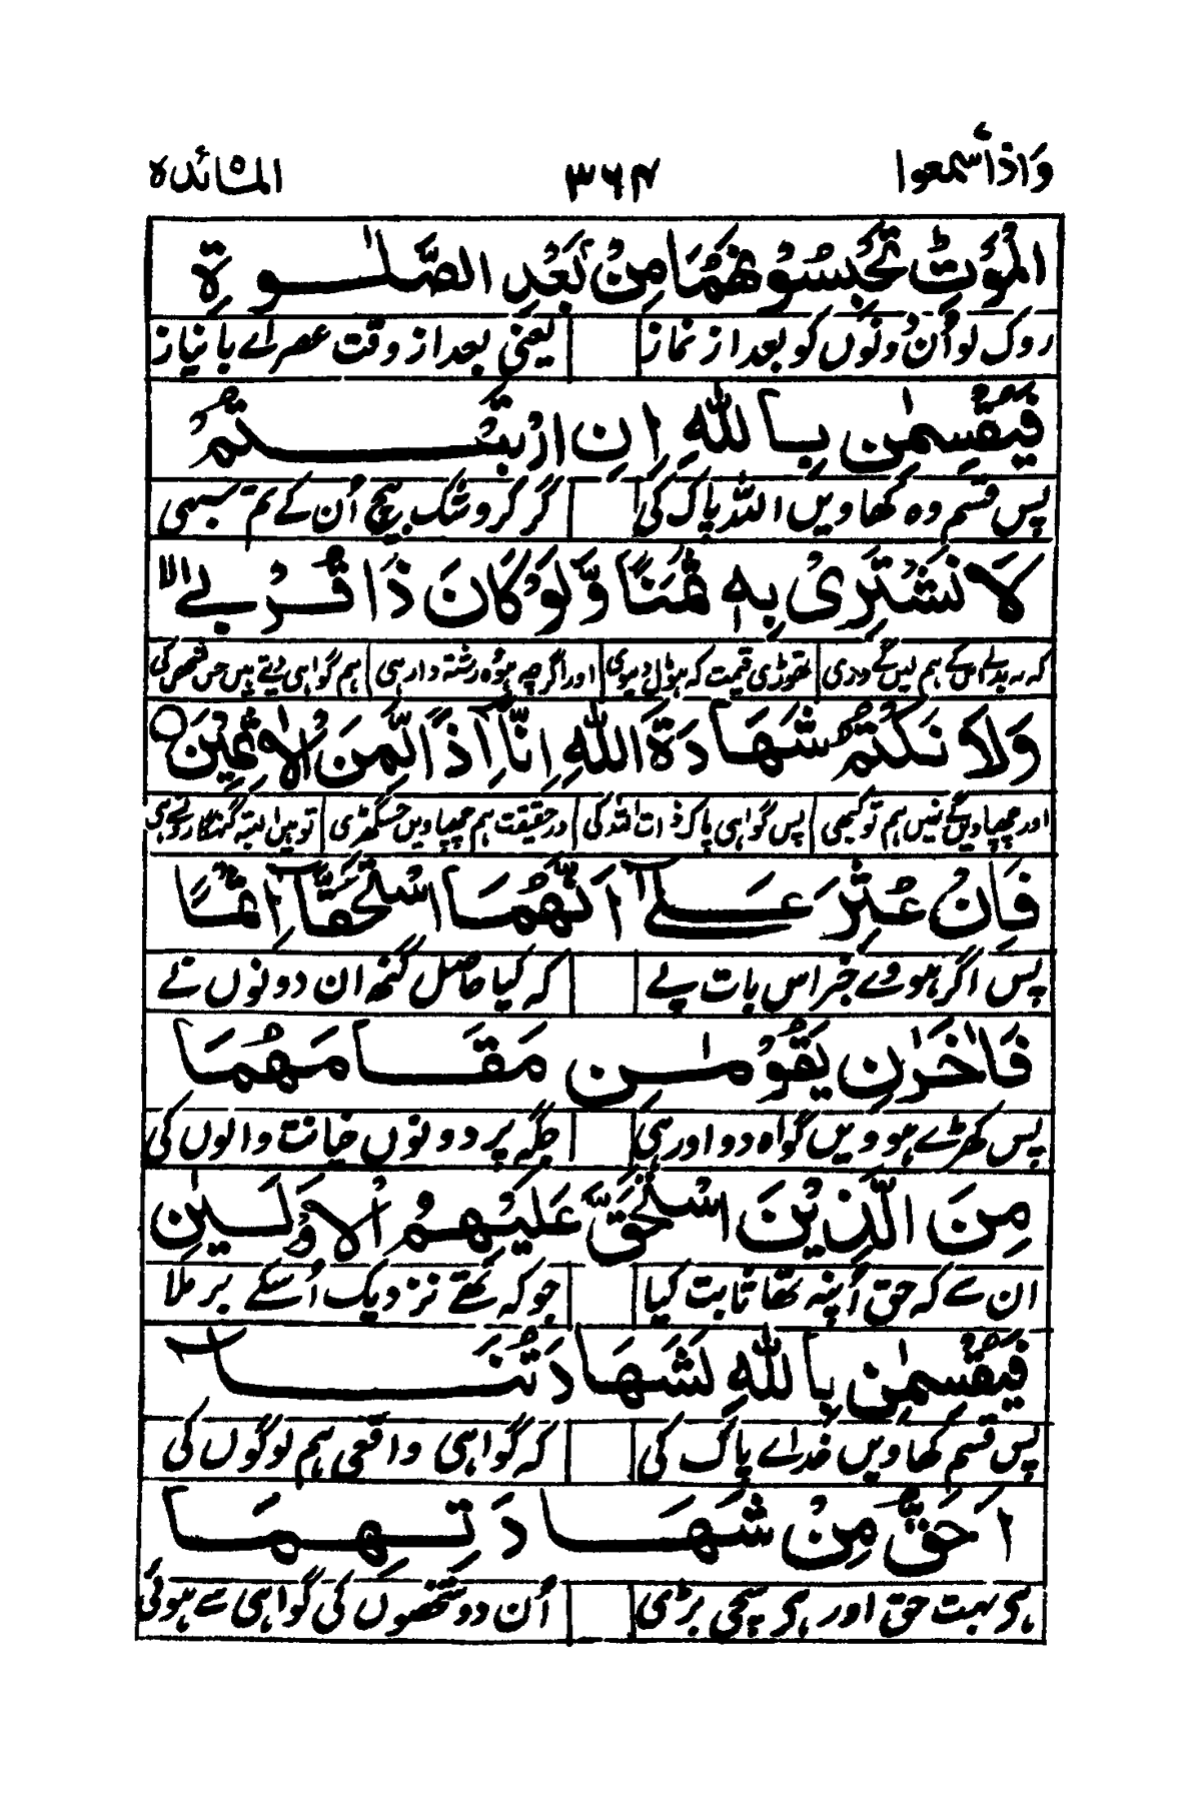 واذا سمعوا ٧ ٣٦٤ المائدة
الْمَوْتِ تَحْبِسُوْنَهُمَا مِنْۢ بَعْدِ الصَّلٰوةِ
روک لو اُن دونوں کو بعد از نماز یعنی بعد از وقت عصر اے با نیاز
فَيُقْسِمٰنِ بِاللّٰهِ اِنِ ارْتَبْتُمْ
پس قسم وہ کھاویں اللہ پاک کی گر کرو شک بیچ اُن کے تم سبھی
لَا نَشْتَرِىْ بِهٖ ثَمَنًا وَّلَوْ كَانَ ذَا قُرْبٰى لا
کہ نہ بدلے اسکے ہم لیں گے تھوڑی قیمت کہ اور اگرچہ ہووہ رشتہ دار ہی ہم گواہی دیتے ہیں جس شخص کی
وَلَا نَكْتُمُ شَهَادَةَ اللّٰهِ اِنَّآ اِذًا لَّمِنَ الْاٰثِمِيْنَ
اور چھپاویں گے نہیں ہم تو کبھی پس گواہی پاک ذات اللہ کی در حقیقت ہم چھپاویں جس گھڑی تو ہیں البتہ گنہگار
فَاِنْ عُثِرَ عَلٰٓى اَنَّهُمَا اسْتَحَقَّآ اِثْمًا
پس اگر ہووے خبر اس بات پے کہ کیا حاصل گنہ ان دونوں نے
فَاٰخَرٰنِ يَقُوْمٰنِ مَقَامَهُمَا
پس کھڑے ہوویں گواہ دو اور ہی جگہ پر دونوں خیانت والوں کی
مِنَ الَّذِيْنَ اسْتَحَقَّ عَلَيْهِمُ الْاَوْلَيٰنِ
ان سے کہ حق اُنپہ تھا ثابت کیا جو کہ تھے نزدیک اُسکے بر ملا
فَيُقْسِمٰنِ بِاللّٰهِ لَشَهَادَتُنَآ
پس قسم کھاویں خداے پاک کی کہ گواہی واقعی ہم لوگوں کی
اَحَقُّ مِنْ شَهَادَتِهِمَا
ہی بہت حق اور ہی سچی بڑی اُن دو شخصوں کی گواہی سے ہوئی